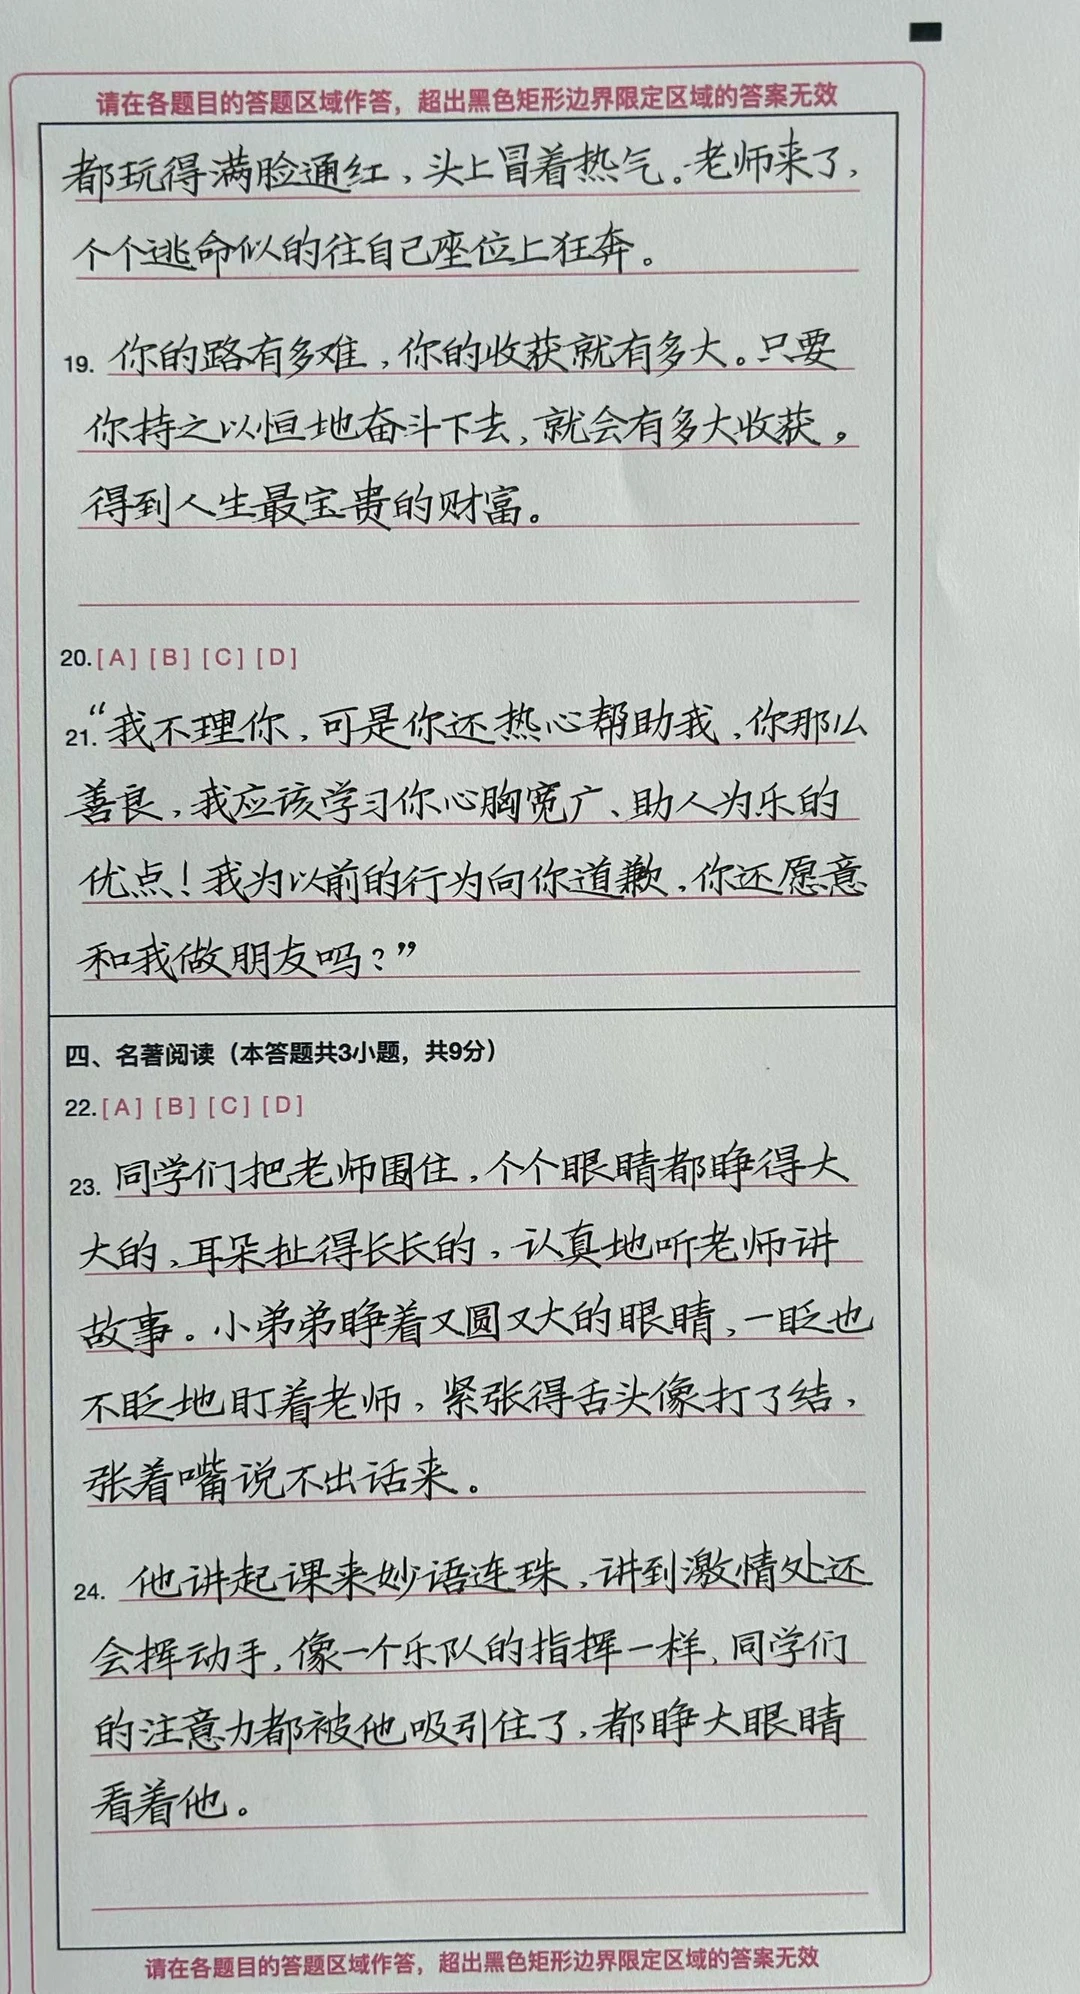 请在各题目的答题区域作答，超出黑色矩形边界限定区域的答案无效
都玩得满脸通红，头上冒着热气。老师来了，
个个逃命似的往自己座位上狂奔。
19. 你的路有多难，你的收获就有多大。只要
你持之以恒地奋斗下去，就会有多大收获。
得到人生最宝贵的财富。
20.[A] [B] [C] [D]
21. “我不理你，可是你还热心帮助我，你那么
善良，我应该学习你心胸宽广、助人为乐的
优点！我为以前的行为向你道歉，你还愿意
和我做朋友吗？”
四、名著阅读（本答题共3小题，共9分）
22.[A] [B] [C] [D]
23. 同学们把老师围住，个个眼睛都睁得大
大的，耳朵扯得长长的，认真地听老师讲
故事。小弟弟睁着又圆又大的眼睛，一眨也
不眨地盯着老师，紧张得舌头像打了结，
张着嘴说不出话来。
24. 他讲起课来妙语连珠，讲到激情处还
会挥动手，像一个乐队的指挥一样，同学们
的注意力都被他吸引住了，都睁大眼睛
看着他。
请在各题目的答题区域作答，超出黑色矩形边界限定区域的答案无效